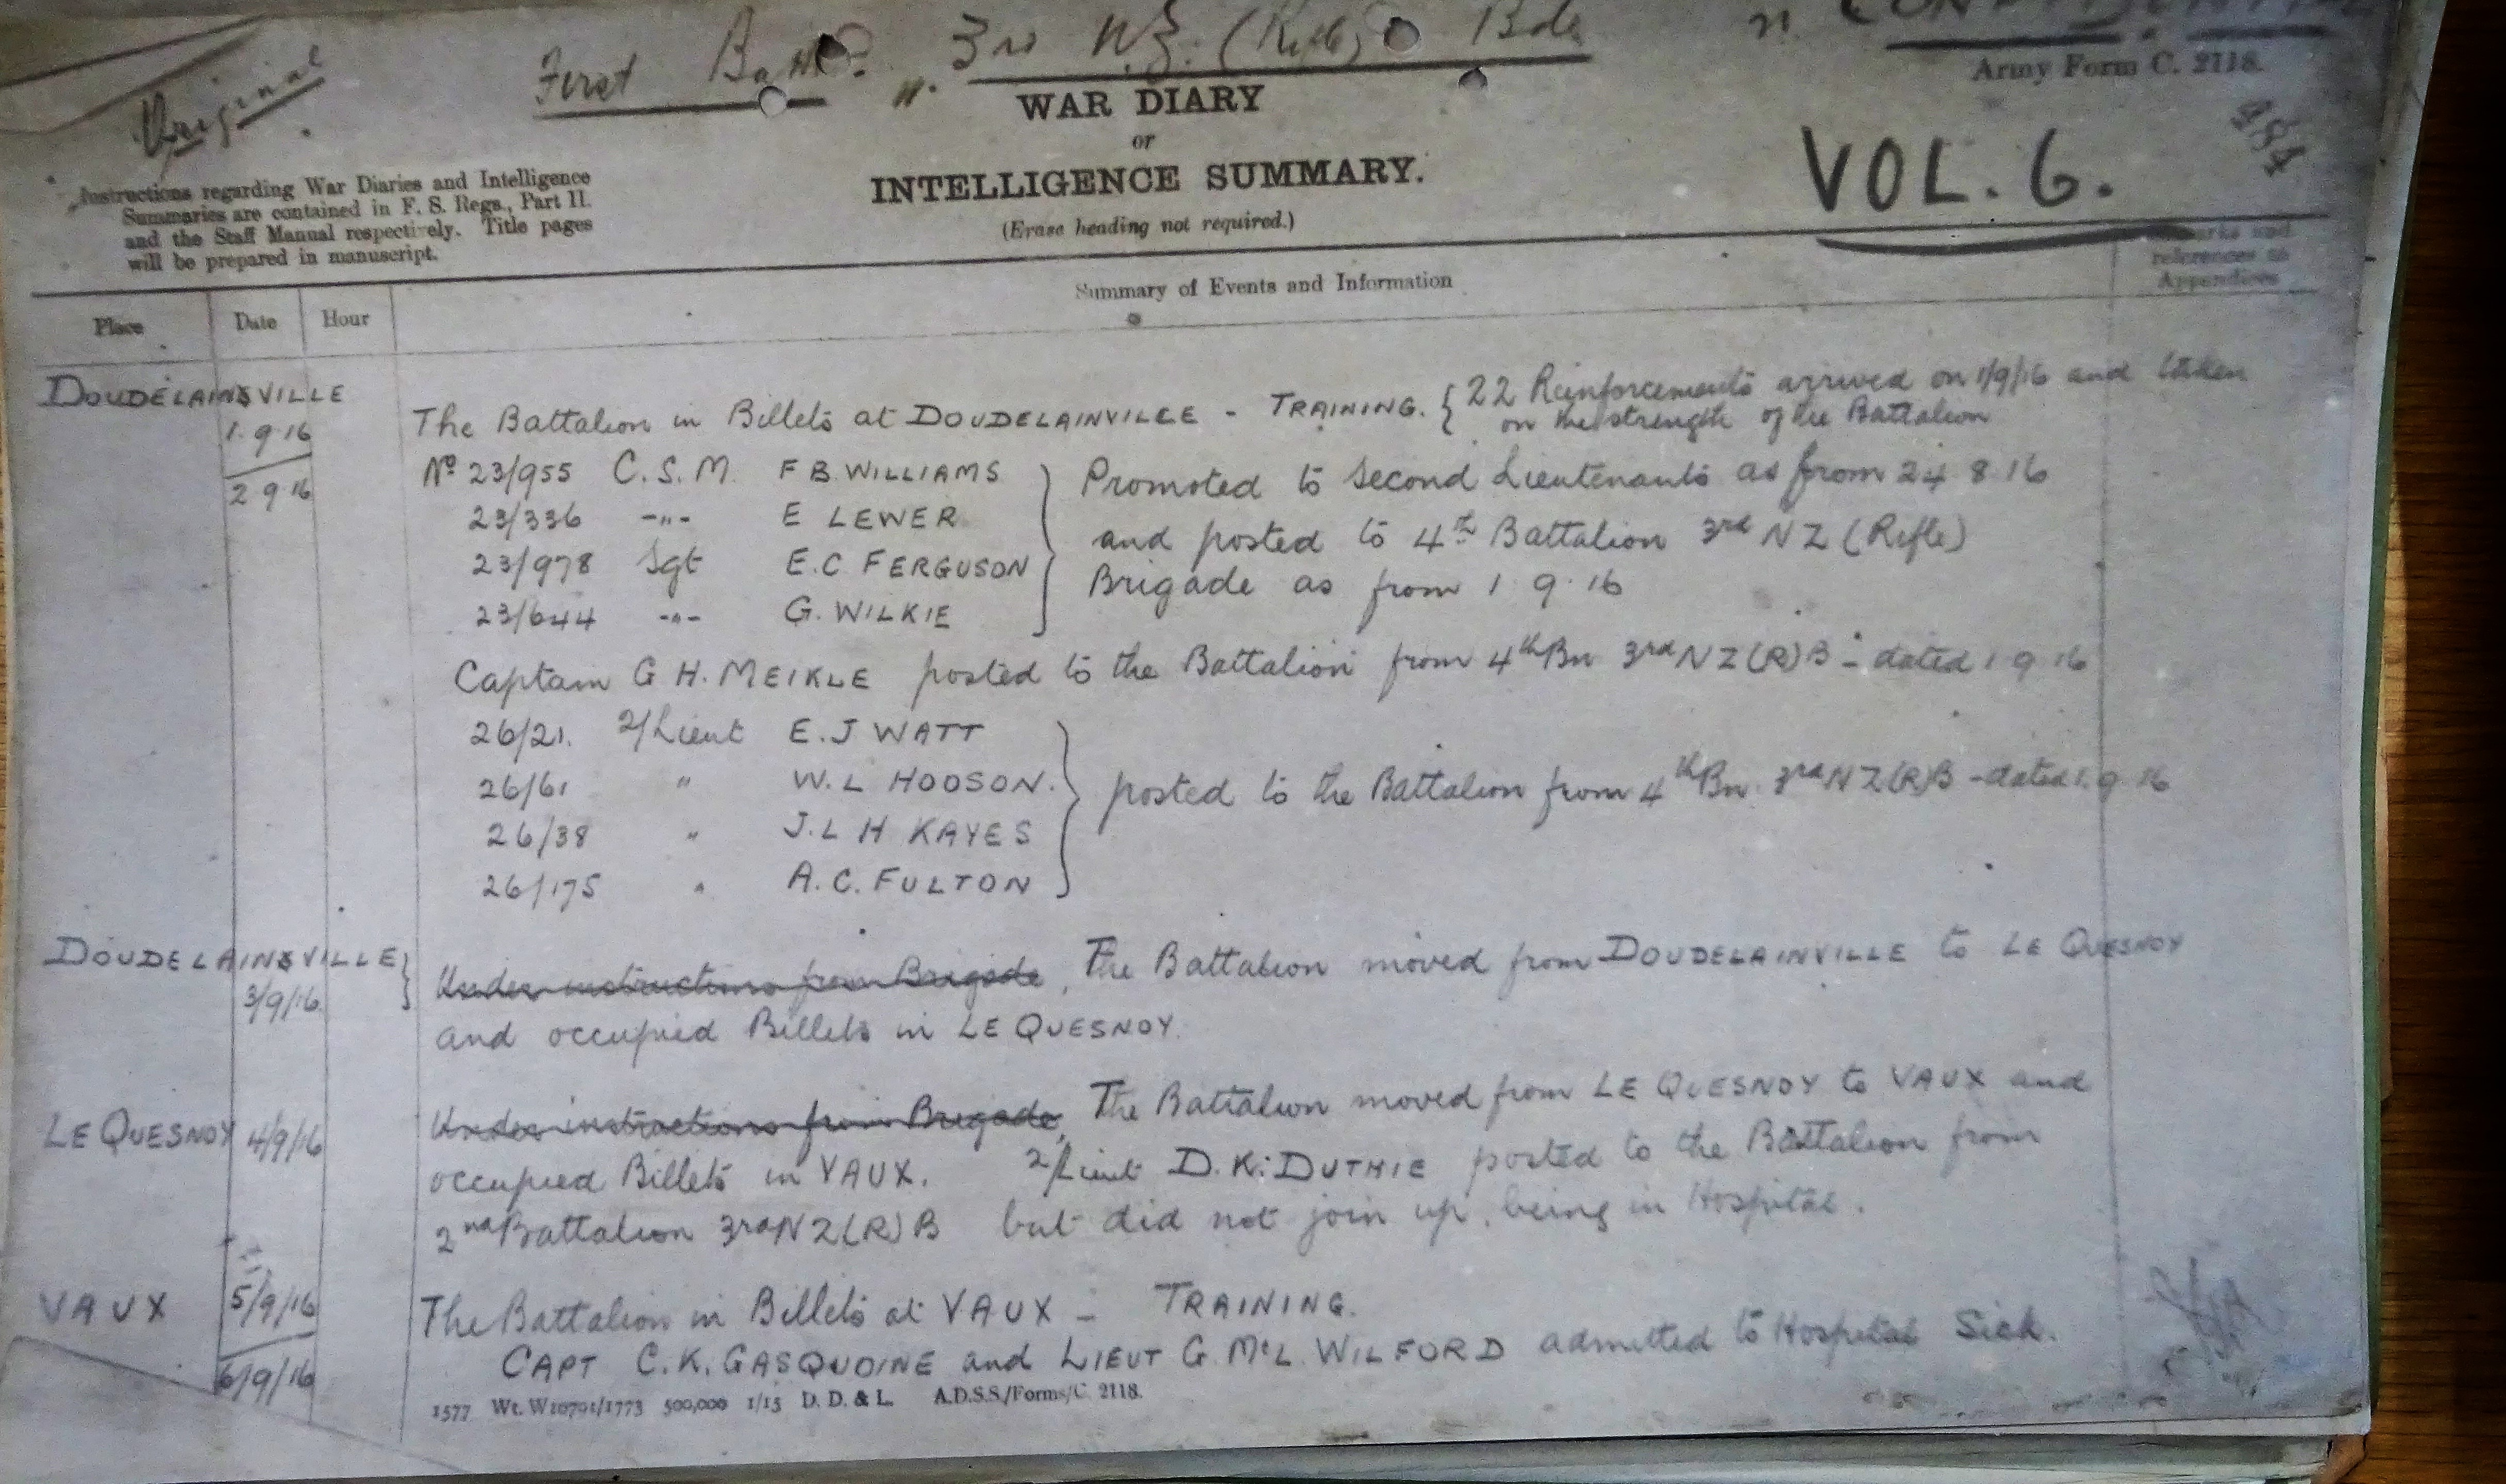 Original
First Battn. 3rd N.Z. (Rifle) Bde
Army Form C. 2118.
WAR DIARY
or
INTELLIGENCE SUMMARY.
(Erase heading not required.)
VOL. 6.
484
Instructions regarding War Diaries and Intelligence
Summaries are contained in F. S. Regs., Part II.
and the Staff Manual respectively. Title pages
will be prepared in manuscript.
Place Date Hour Summary of Events and Information Remarks and
references to
Appendices
DOUDELAINVILLE
1.9.16 The Battalion in Billets at DOUDELAINVILLE - TRAINING. { 22 Reinforcements arrived on 1/9/16 and taken
on the strength of the Battalion
2.9.16 No 23/955 C.S.M. F B. WILLIAMS } Promoted to Second Lieutenants as from 24 8.16
23/336 -"- E LEWER and posted to 4th Battalion 3rd NZ (Rifle)
23/978 Sgt E.C FERGUSON Brigade as from 1 9.16
23/644 -"- G. WILKIE
Captain G H. MEIKLE posted to the Battalion from 4th Bn 3rd NZ(R)B - dated 1 9 16
26/21. 2/Lieut E.J WATT
26/61 " W.L HODSON. } posted to the Battalion from 4th Bn 3rd NZ(R)B - dated 1.9.16
26/38 " J.L H KAYES
26/175 " A.C. FULTON
DOUDELAINVILLE }
3/9/16 Under instructions from Brigade, The Battalion moved from DOUDELAINVILLE to LE QUESNOY
and occupied Billets in LE QUESNOY.
LE QUESNOY 4/9/16 Under instructions from Brigade, The Battalion moved from LE QUESNOY to VAUX and
occupied Billets in VAUX. 2/Lieut D.K. DUTHIE posted to the Battalion from
2nd Battalion 3rd NZ(R)B but did not join up, being in Hospital.
VAUX 5/9/16 The Battalion in Billets at VAUX - TRAINING.
6/9/16 CAPT C.K. GASQUOINE and LIEUT G. McL. WILFORD admitted to Hospital Sick.
1577 Wt. W10791/1773 500,000 1/15 D. D. & L. A.D.S.S./Forms/C. 2118.